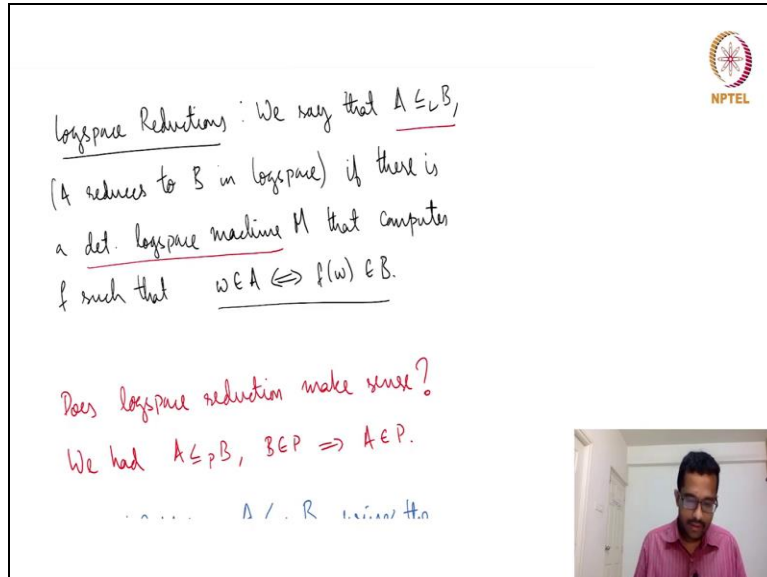 Logspace Reductions : We say that A ≤L B,
(A reduces to B in logspace) if there is
a det. logspace machine M that computes
f such that w∈A ⟺ f(w) ∈B.
Does logspace reduction make sense?
We had A ≤P B, B∈P ⟹ A∈P.
NPTEL